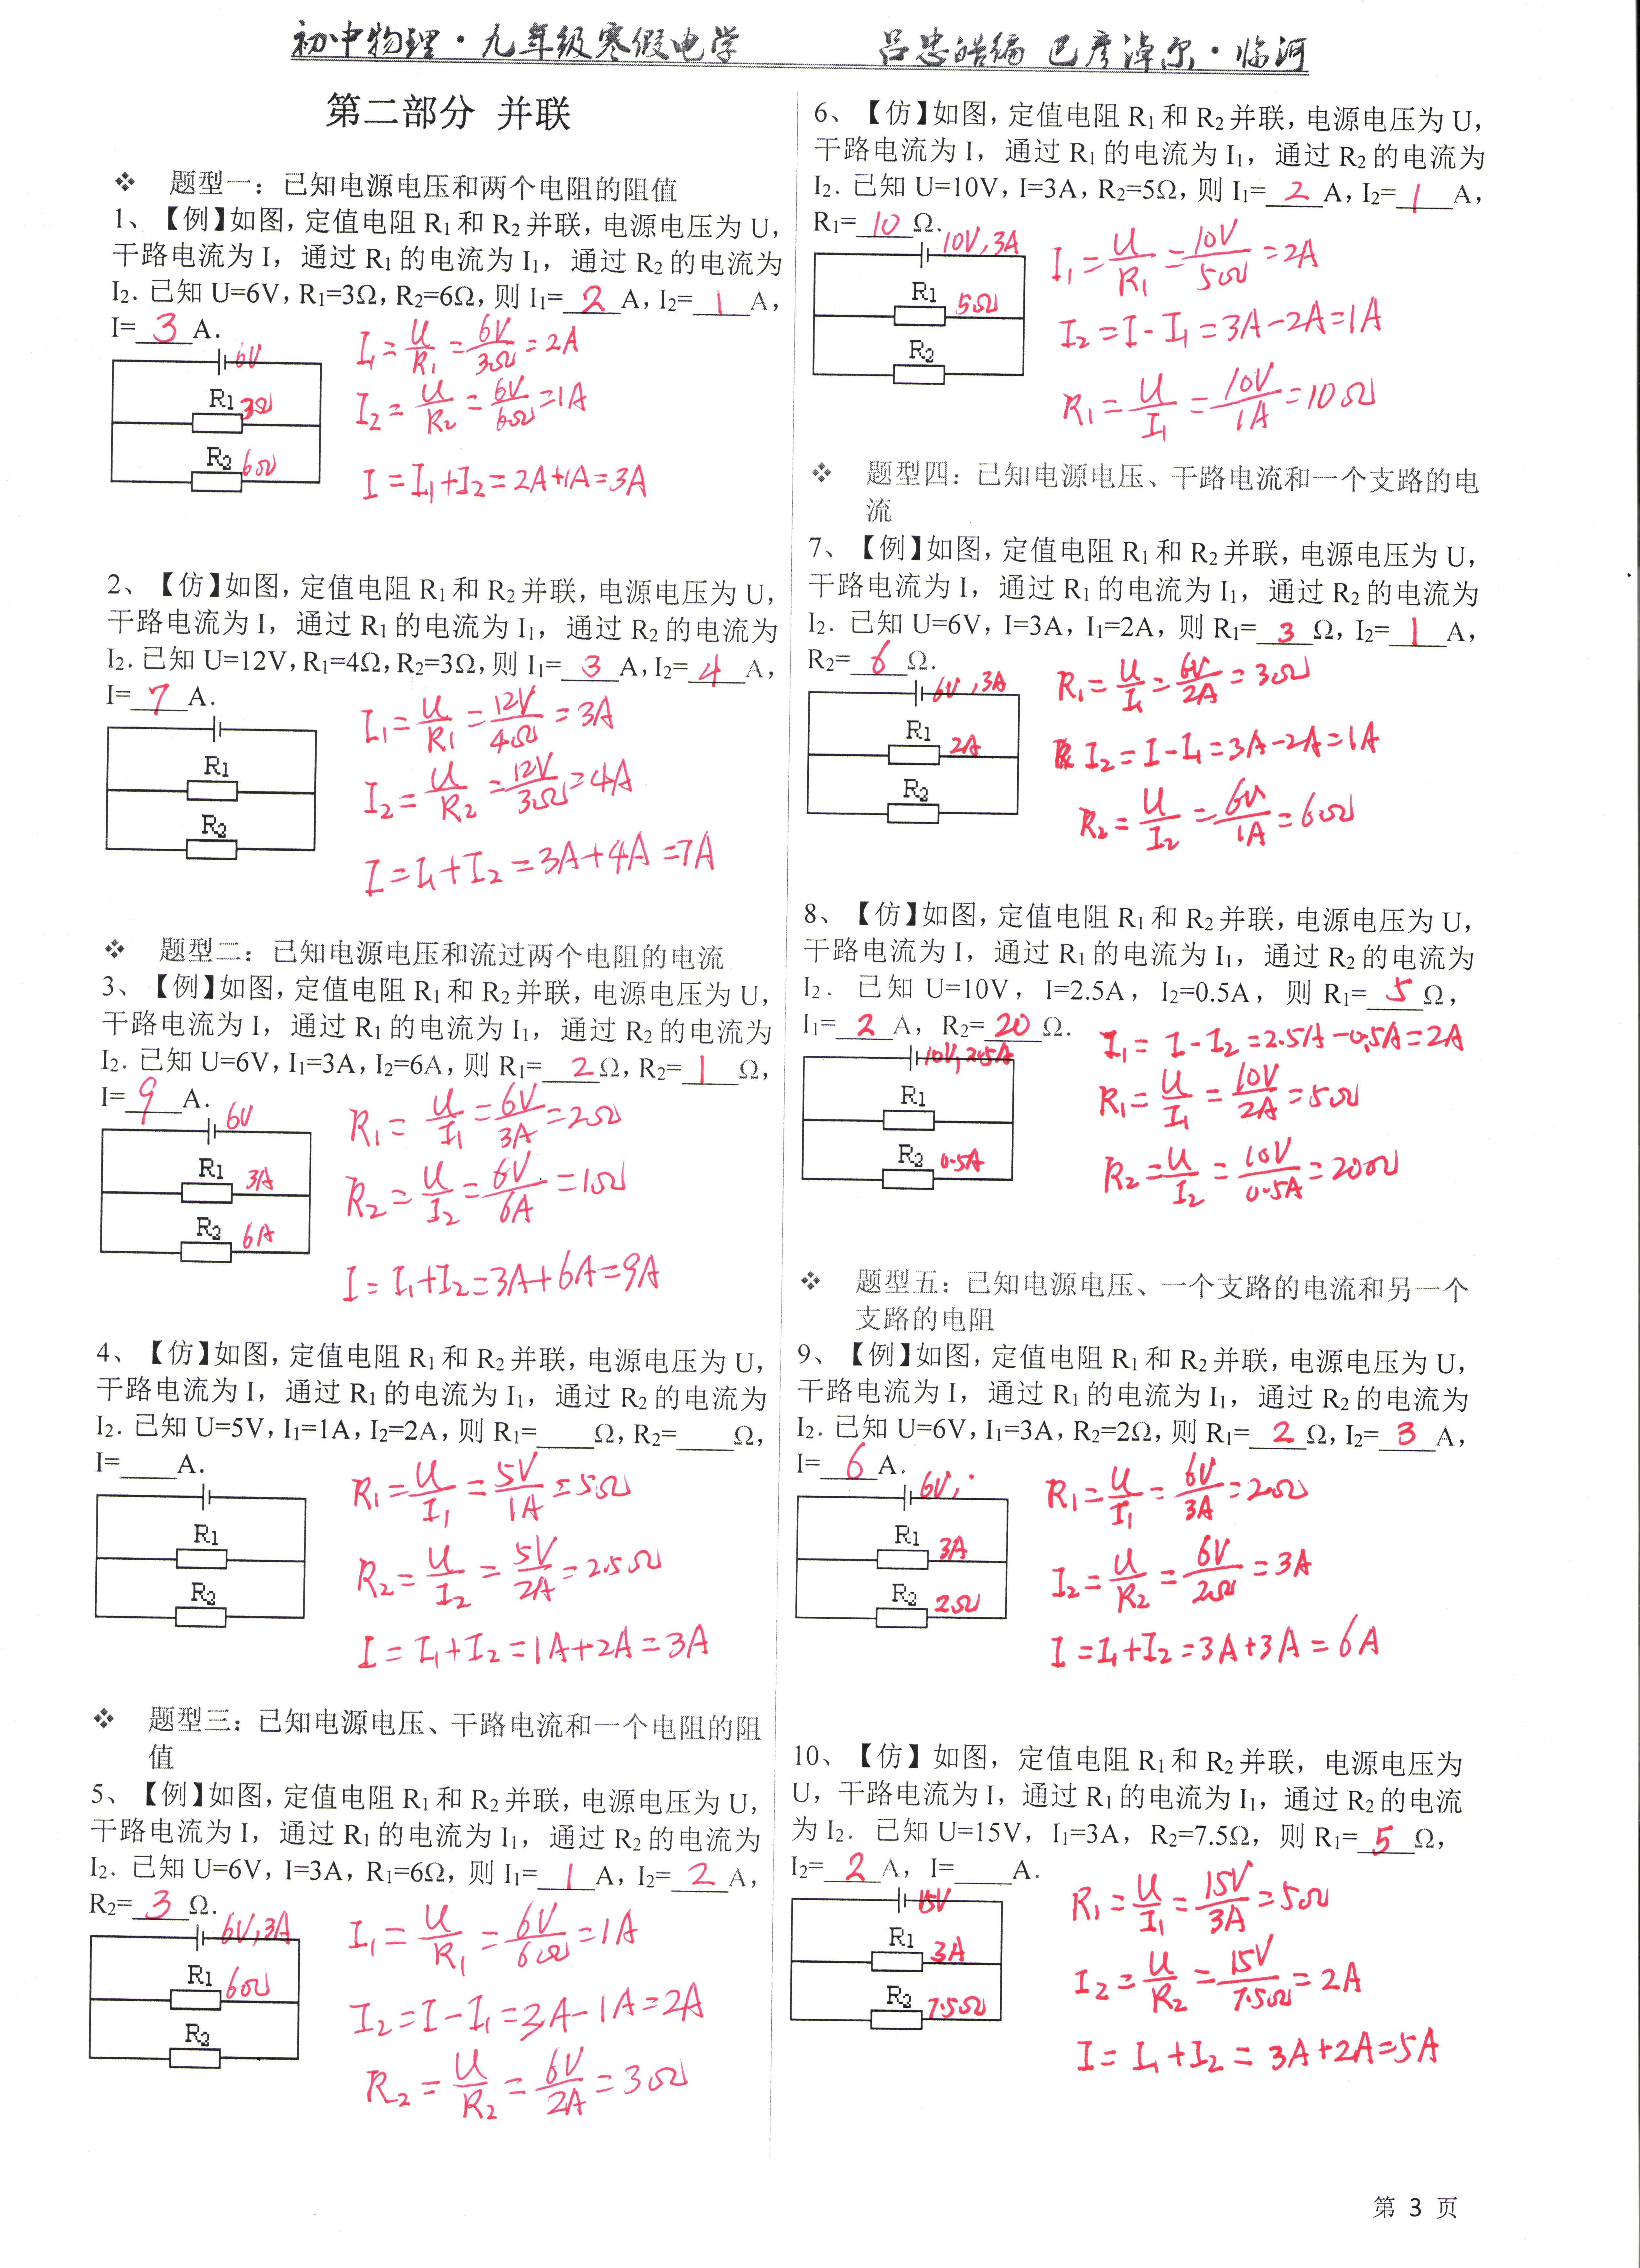 初中物理·九年级寒假电学 吕忠皓编 巴彦淖尔·临河
第二部分 并联
❖ 题型一：已知电源电压和两个电阻的阻值
1、【例】如图，定值电阻 R1 和 R2 并联，电源电压为 U，
干路电流为 I，通过 R1 的电流为 I1，通过 R2 的电流为
I2．已知 U=6V，R1=3Ω，R2=6Ω，则 I1= 2 A，I2= 1 A，
I= 3 A．
6V
R1 3Ω
R2 6Ω
I1=U/R1=6V/3Ω=2A
I2=U/R2=6V/6Ω=1A
I=I1+I2=2A+1A=3A
2、【仿】如图，定值电阻 R1 和 R2 并联，电源电压为 U，
干路电流为 I，通过 R1 的电流为 I1，通过 R2 的电流为
I2．已知 U=12V，R1=4Ω，R2=3Ω，则 I1= 3 A，I2= 4 A，
I= 7 A．
R1
R2
I1=U/R1=12V/4Ω=3A
I2=U/R2=12V/3Ω=4A
I=I1+I2=3A+4A=7A
❖ 题型二：已知电源电压和流过两个电阻的电流
3、【例】如图，定值电阻 R1 和 R2 并联，电源电压为 U，
干路电流为 I，通过 R1 的电流为 I1，通过 R2 的电流为
I2．已知 U=6V，I1=3A，I2=6A，则 R1= 2 Ω，R2= 1 Ω，
I= 9 A．
6V
R1 3A
R2 6A
R1=U/I1=6V/3A=2Ω
R2=U/I2=6V/6A=1Ω
I=I1+I2=3A+6A=9A
4、【仿】如图，定值电阻 R1 和 R2 并联，电源电压为 U，
干路电流为 I，通过 R1 的电流为 I1，通过 R2 的电流为
I2．已知 U=5V，I1=1A，I2=2A，则 R1=____Ω，R2=____Ω，
I=____A．
R1
R2
R1=U/I1=5V/1A=5Ω
R2=U/I2=5V/2A=2.5Ω
I=I1+I2=1A+2A=3A
❖ 题型三：已知电源电压、干路电流和一个电阻的阻
值
5、【例】如图，定值电阻 R1 和 R2 并联，电源电压为 U，
干路电流为 I，通过 R1 的电流为 I1，通过 R2 的电流为
I2．已知 U=6V，I=3A，R1=6Ω，则 I1= 1 A，I2= 2 A，
R2= 3 Ω．
6V,3A
R1 6Ω
R2
I1=U/R1=6V/6Ω=1A
I2=I-I1=3A-1A=2A
R2=U/R2=6V/2A=3Ω
6、【仿】如图，定值电阻 R1 和 R2 并联，电源电压为 U，
干路电流为 I，通过 R1 的电流为 I1，通过 R2 的电流为
I2．已知 U=10V，I=3A，R2=5Ω，则 I1= 2 A，I2= 1 A，
R1= 10 Ω．
10V,3A
R1 5Ω
R2
I1=U/R1=10V/5Ω=2A
I2=I-I1=3A-2A=1A
R1=U/I1=10V/1A=10Ω
❖ 题型四：已知电源电压、干路电流和一个支路的电
流
7、【例】如图，定值电阻 R1 和 R2 并联，电源电压为 U，
干路电流为 I，通过 R1 的电流为 I1，通过 R2 的电流为
I2．已知 U=6V，I=3A，I1=2A，则 R1= 3 Ω，I2= 1 A，
R2= 6 Ω．
6V,3A
R1 2A
R2
R1=U/I1=6V/2A=3Ω
I2=I-I1=3A-2A=1A
R2=U/I2=6V/1A=6Ω
8、【仿】如图，定值电阻 R1 和 R2 并联，电源电压为 U，
干路电流为 I，通过 R1 的电流为 I1，通过 R2 的电流为
I2．已知 U=10V，I=2.5A，I2=0.5A，则 R1= 5 Ω，
I1= 2 A，R2= 20 Ω．
10V,2.5A
R1
R2 0.5A
I1=I-I2=2.5A-0.5A=2A
R1=U/I1=10V/2A=5Ω
R2=U/I2=10V/0.5A=20Ω
❖ 题型五：已知电源电压、一个支路的电流和另一个
支路的电阻
9、【例】如图，定值电阻 R1 和 R2 并联，电源电压为 U，
干路电流为 I，通过 R1 的电流为 I1，通过 R2 的电流为
I2．已知 U=6V，I1=3A，R2=2Ω，则 R1= 2 Ω，I2= 3 A，
I= 6 A．
6V,
R1 3A
R2 2Ω
R1=U/I1=6V/3A=2Ω
I2=U/R2=6V/2Ω=3A
I=I1+I2=3A+3A=6A
10、【仿】如图，定值电阻 R1 和 R2 并联，电源电压为
U，干路电流为 I，通过 R1 的电流为 I1，通过 R2 的电流
为 I2．已知 U=15V，I1=3A，R2=7.5Ω，则 R1= 5 Ω，
I2= 2 A，I=____A．
15V
R1 3A
R2 7.5Ω
R1=U/I1=15V/3A=5Ω
I2=U/R2=15V/7.5Ω=2A
I=I1+I2=3A+2A=5A
第 3 页